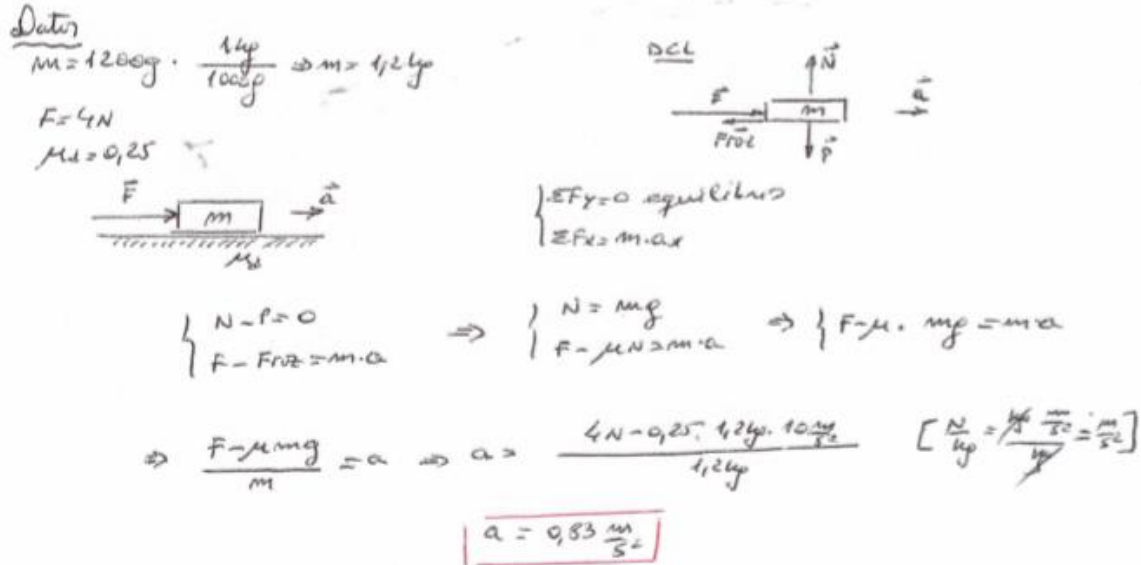 Datos
m = 1200g · 1kg / 1000g ⇒ m = 1,2kg
F = 4N
μd = 0,25
F⃗ m a⃗
μd
DCL
N⃗
F⃗ m a⃗
F⃗roz
P⃗
{ ΣFy = 0 equilibrio
{ ΣFx = m·ax
{ N - P = 0 ⇒ { N = mg ⇒ { F - μ · mg = m·a
{ F - Froz = m·a { F - μN = m·a
⇒ F - μmg / m = a ⇒ a = 4N - 0,25 · 1,2kg · 10 m/s² / 1,2kg [ N/kg = kg m/s² / kg = m/s² ]
a = 0,83 m/s²